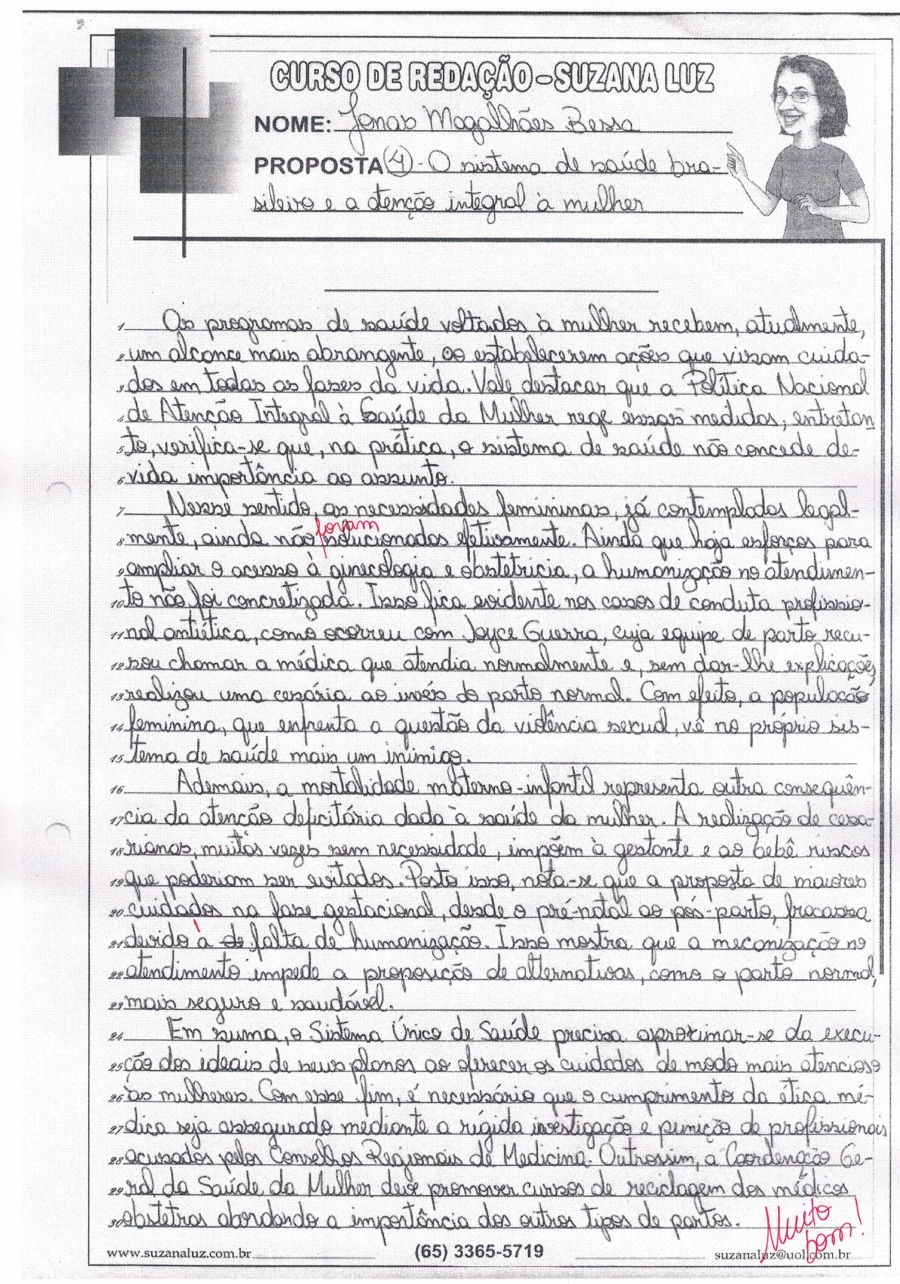 CURSO DE REDAÇÃO - SUZANA LUZ
NOME: Jonas Magalhães Bessa
PROPOSTA (4) - O sistema de saúde bra-
sileiro e a atenção integral à mulher
1 Os programas de saúde voltados à mulher recebem, atualmente,
2 um alcance mais abrangente, ao estabelecerem ações que visam cuida-
3 dos em todas as fases da vida. Vale destacar que a Política Nacional
4 de Atenção Integral à Saúde da Mulher rege essas medidas, entretan
5 to, verifica-se que, na prática, o sistema de saúde não concede de-
6 vida importância ao assunto.
7 Nesse sentido, as necessidades femininas, já contempladas legal-
foram
8 mente, ainda não solucionadas efetivamente. Ainda que haja esforços para
9 ampliar o acesso à ginecologia e obstetrícia, a humanização no atendimen-
10 to não foi concretizada. Isso fica evidente nos casos de conduta profissio-
11 nal antiética, como ocorreu com Joyce Guerra, cuja equipe de parto recu-
12 sou chamar a médica que atendia normalmente e, sem dar-lhe explicações,
13 realizou uma cesária ao invés do parto normal. Com efeito, a população
14 feminina, que enfrenta a questão da violência sexual, vê no próprio sis-
15 tema de saúde mais um inimigo.
16 Ademais, a mortalidade materno-infantil representa outra consequên-
17 cia da atenção deficitária dada à saúde da mulher. A realização de cesa-
18 rianas, muitas vezes sem necessidade, impõem à gestante e ao bebê riscos
19 que poderiam ser evitados. Posto isso, nota-se que a proposta de maiores
20 cuidados na fase gestacional, desde o pré-natal ao pós-parto, fracassa
21 devido à falta de humanização. Isso mostra que a mecanização no
22 atendimento impede a proposição de alternativas, como o parto normal,
23 mais seguro e saudável.
24 Em suma, o Sistema Único de Saúde precisa aproximar-se da execu-
25 ção dos ideais de seus planos ao oferecer os cuidados de modo mais atencioso
26 às mulheres. Com esse fim, é necessário que o cumprimento da ética mé-
27 dica seja assegurado mediante a rígida investigação e punição de profissionais
28 acusados pelos Conselhos Regionais de Medicina. Outrossim, a Coordenação Ge-
29 ral da Saúde da Mulher deve promover cursos de reciclagem dos médicos
30 obstetras abordando a importância dos outros tipos de partos.
Muito
bom!
www.suzanaluz.com.br (65) 3365-5719 suzanaluz@uol.com.br